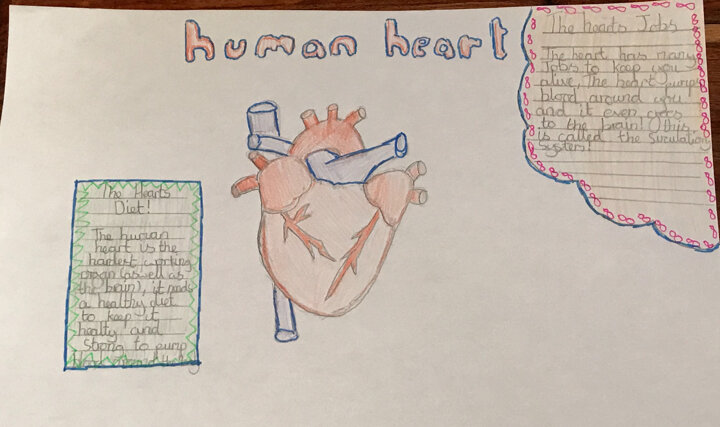 human heart
The hearts Jobs
The heart has many
Jobs to keep you
alive, The heart pumps
blood around you
and it even
to the brain! (this
is called the
system!
The Hearts
Diet!
The human
heart is the
hardest working
organ (as well as
the brain), it needs
a healthy diet
to keep it
healty and
Strong to pump
blood